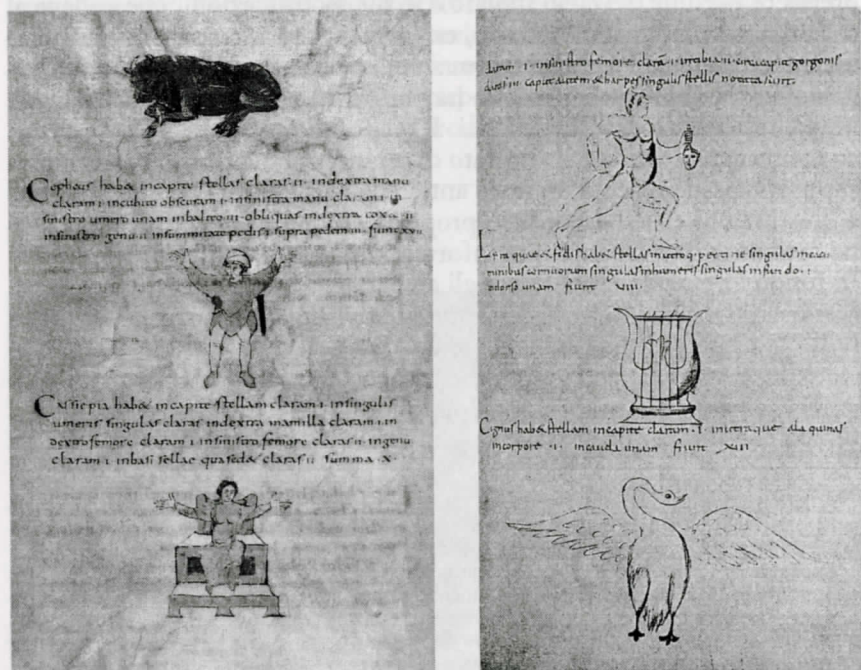 Cepheus habet incapite stellas claras ii indextra manu
claram i incubito obscuram i insinistra manu claram i in
sinistro umero unam inbalteo iii obliquas indextra coxa ii
insinistro genu ii insummitate pedis i supra pedem iii fiunt
Cassiepia habet incapite stellam claram i insingulis
umeris singulas claras indextra mamilla claram i in
dextro femore claram i insinistro femore claras ii ingenu
claram i inbasi sellae qua sedet claras ii summa x
i insinistro femore claram i intibia ii circa caput gorgonis
iii caput autem & harpes singulis stellis notata sunt
Lyra quae & fidis habet stellas singulas
singulas inhumeris singulas infundo i
dorso unam fiunt viiii
Cignus habet stellam incapite claram i inutraque ala quinas
incorpore i incauda unam fiunt xiii